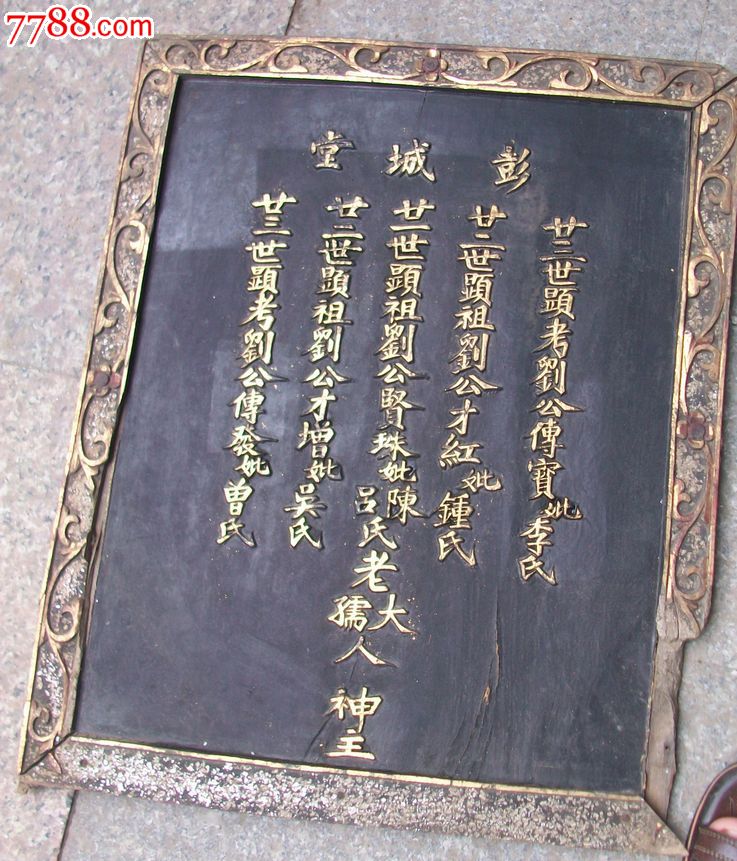 7788.com
彭城堂
廿三世顯考劉公傳寶妣李氏
廿二世顯祖劉公才紅妣鍾氏
廿一世顯祖劉公賢珠妣陳呂氏老大孺人神主
廿二世顯祖劉公才增妣吳氏
廿三世顯考劉公傳發妣曾氏